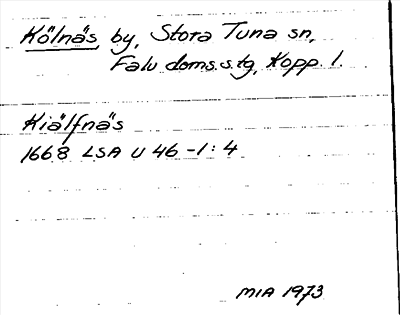 Kölnäs by, Stora Tuna sn,
Falu doms.s.tg, Kopp. l.
Kiälfnäs
1668 LSA U 46 -1:4
MIA 1973